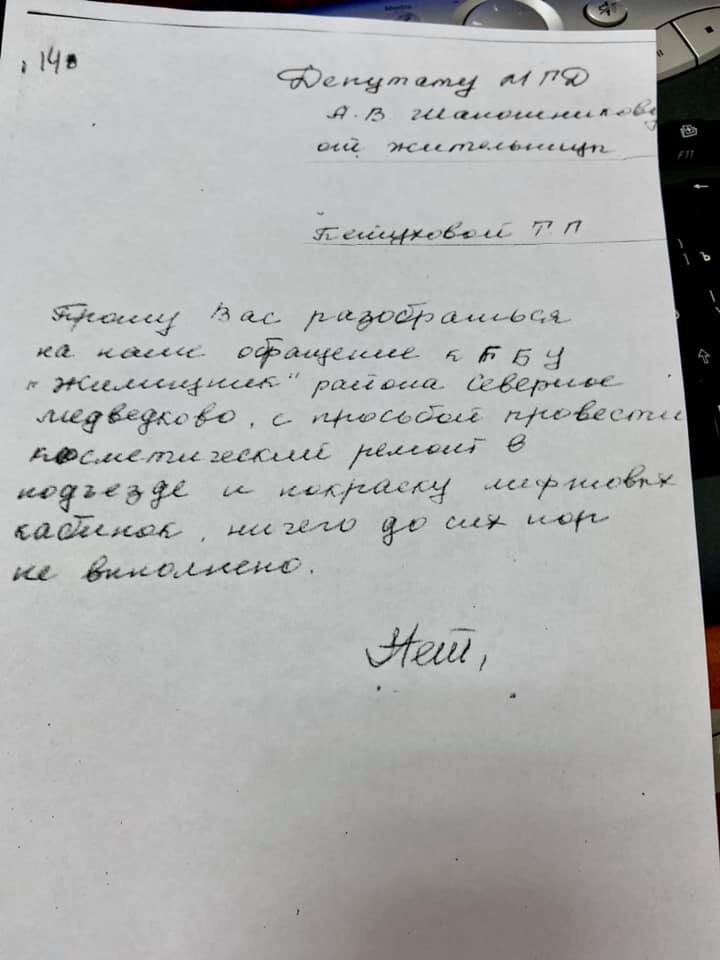 14
Депутату МГД
А.В Шапошникову
от жительницы
Петуховой Т.П
Прошу Вас разобраться
на наше обращение к ГБУ
"Жилищник" района Северное
Медведково, с просьбой провести
косметический ремонт в
подъезде и покраску лифтовых
кабинок, ничего до сих пор
не выполнено.
F11